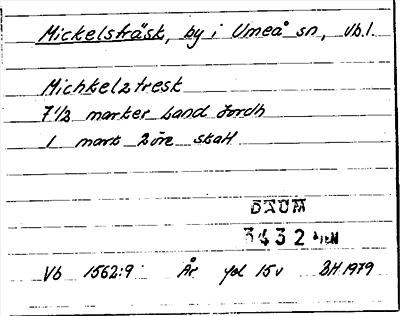 Mickelsträsk, by i Umeå sn, Vb.l.
Michkelztresk
7 1/2 marker Land Jordh
1 mark 2 öre skatt
DAUM
3432
Vb 1562:9 År 15v BH 1979